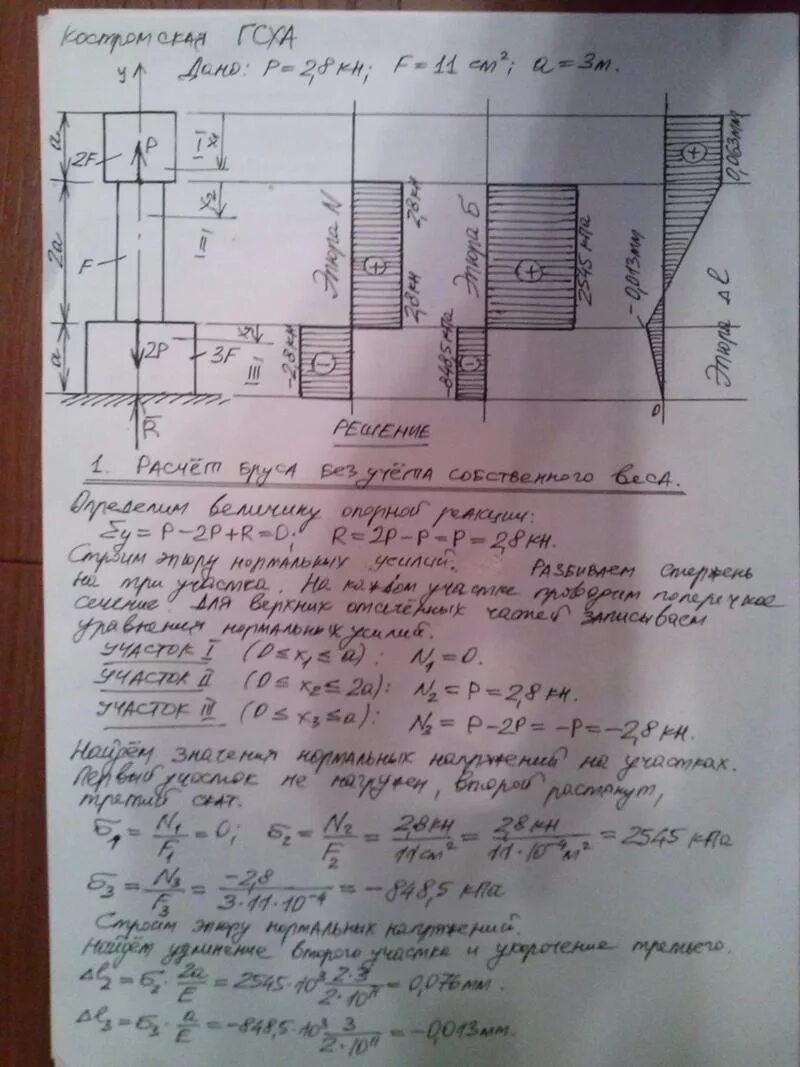 Костромская ГСХА
Дано: P = 2,8 кН; F = 11 см²; a = 3 м.
y
a
2a
a
2F
P
F
2P
3F
R
I I
x₁
x₂
II II
x₃
III III
Эпюра N
2,8 кН
2,8 кН
-2,8 кН
Эпюра б
2545 кПа
-848,5 кПа
0,063 мм
-0,013 мм
Эпюра Δl
0
РЕШЕНИЕ
1. Расчёт бруса без учёта собственного веса.
Определим величину опорной реакции:
Σy = P - 2P + R = 0; R = 2P - P = P = 2,8 кН.
Строим эпюру нормальных усилий. Разбиваем стержень
на три участка. На каждом участке проводим поперечное
сечение. Для верхних отсечённых частей записываем
уравнения нормальных усилий.
Участок I (0 ≤ x₁ ≤ a): N₁ = 0.
Участок II (0 ≤ x₂ ≤ 2a): N₂ = P = 2,8 кН.
Участок III (0 ≤ x₃ ≤ a): N₃ = P - 2P = -P = -2,8 кН.
Найдём значения нормальных напряжений на участках.
Первый участок не нагружен, второй растянут,
третий сжат.
б₁ = N₁/F₁ = 0; б₂ = N₂/F₂ = 2,8 кН/11 см² = 2,8 кН/11·10⁻⁴ м² = 2545 кПа
б₃ = N₃/F₃ = -2,8/3·11·10⁻⁴ = -848,5 кПа
Строим эпюру нормальных напряжений.
Найдём удлинение второго участка и укорочение третьего.
Δl₂ = б₂ · 2a/E = 2545·10³ 2·3/2·10¹¹ = 0,076 мм.
Δl₃ = б₃ · a/E = -848,5·10³ 3/2·10¹¹ = -0,013 мм.